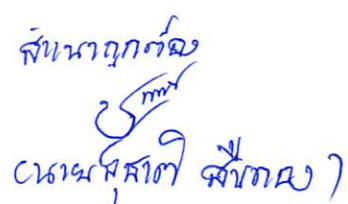 สำเนาถูกต้อง
(นายสุชาติ สืบทอง)